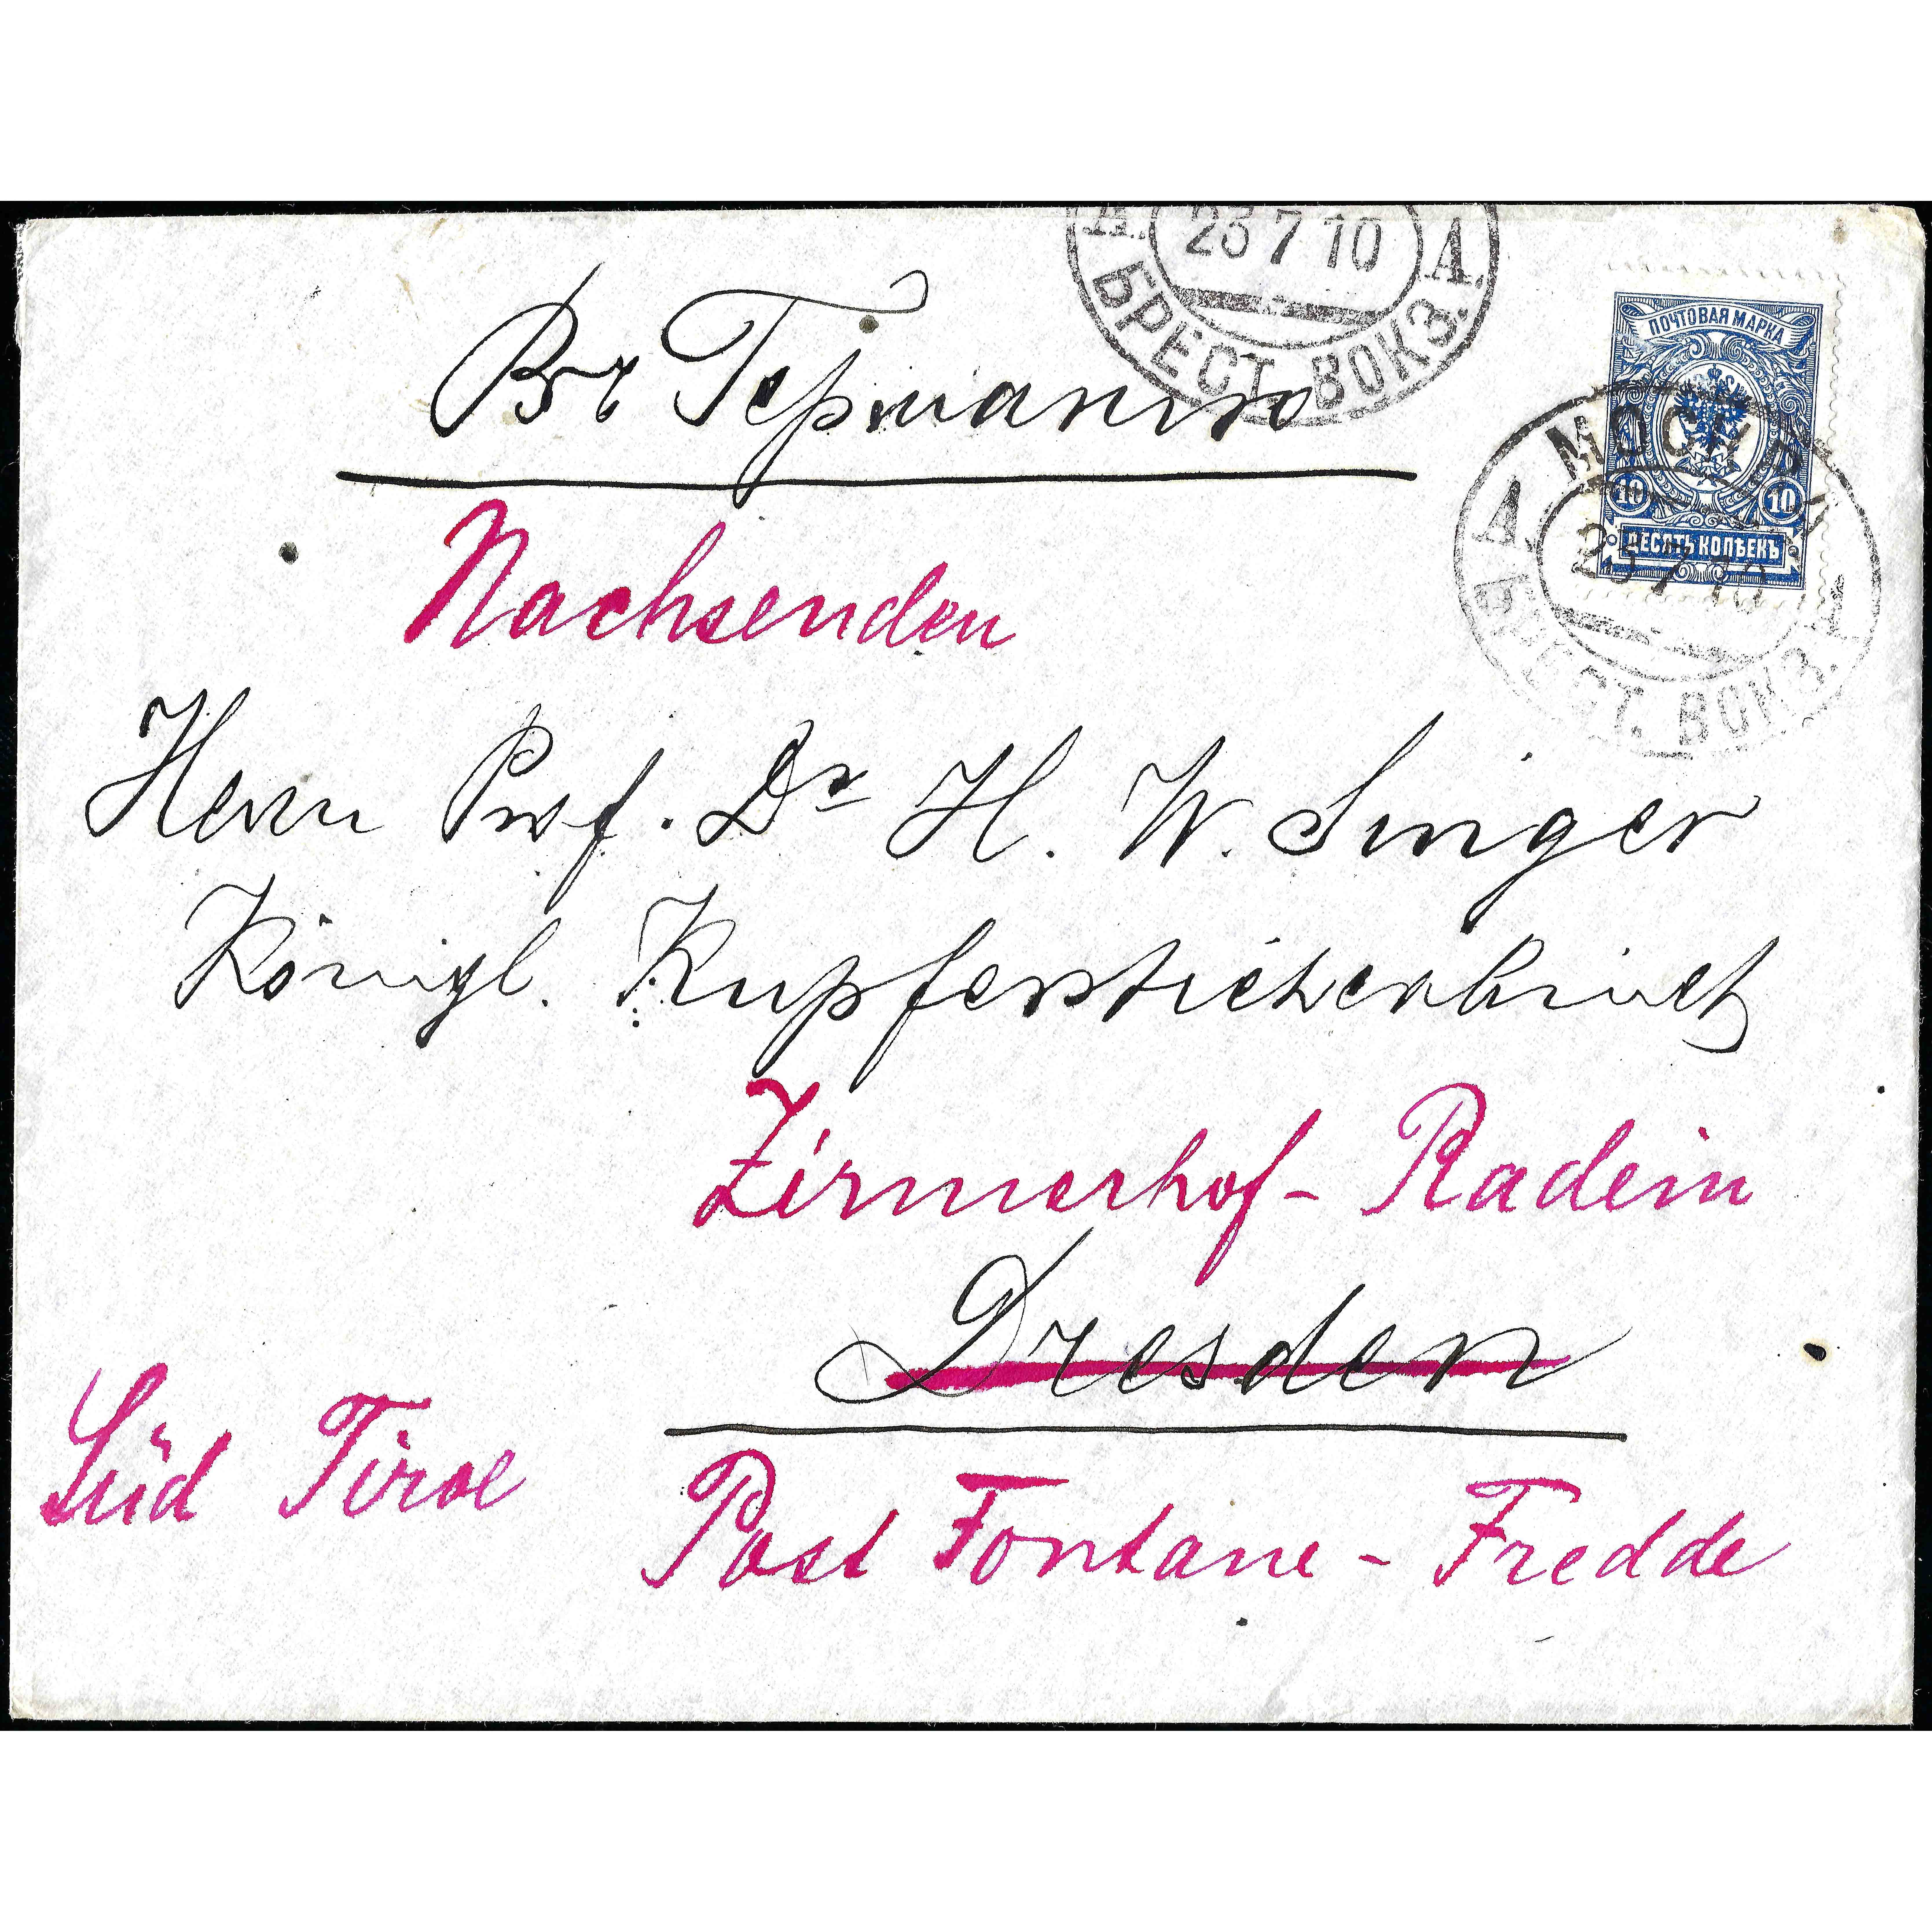 А. 23 7 10 А.
БРЕСТ. ВОКЗ.
ПОЧТОВАЯ МАРКА
10 10
ДЕСЯТЬ КОПѢЕКЪ
МОСКВА
А 23 7 10 А
БРЕСТ. ВОКЗ.
Въ Германію
Nachsenden
Herrn Prof. Dr H. W. Singer
Königl. Kupferstichcabinet
Zirmerhof - Radein
Dresden
Süd Tirol
Post Fontane - Fredde